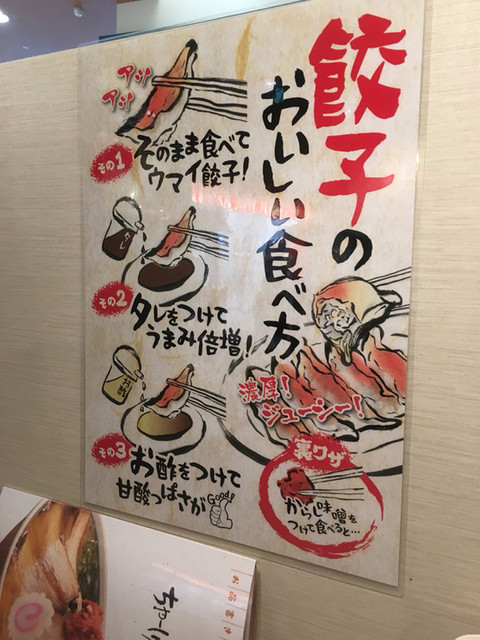 餃子の
おいしい食べ方
アツ
アツ
その1
そのまま食べて
ウマイ餃子!
タレ
その2
タレをつけて
うまみ倍増!
お酢
その3
お酢をつけて
甘酸っぱさが
Good!
濃厚!
ジューシー!
裏ワザ
からし味噌を
つけて食べると…
お品書き